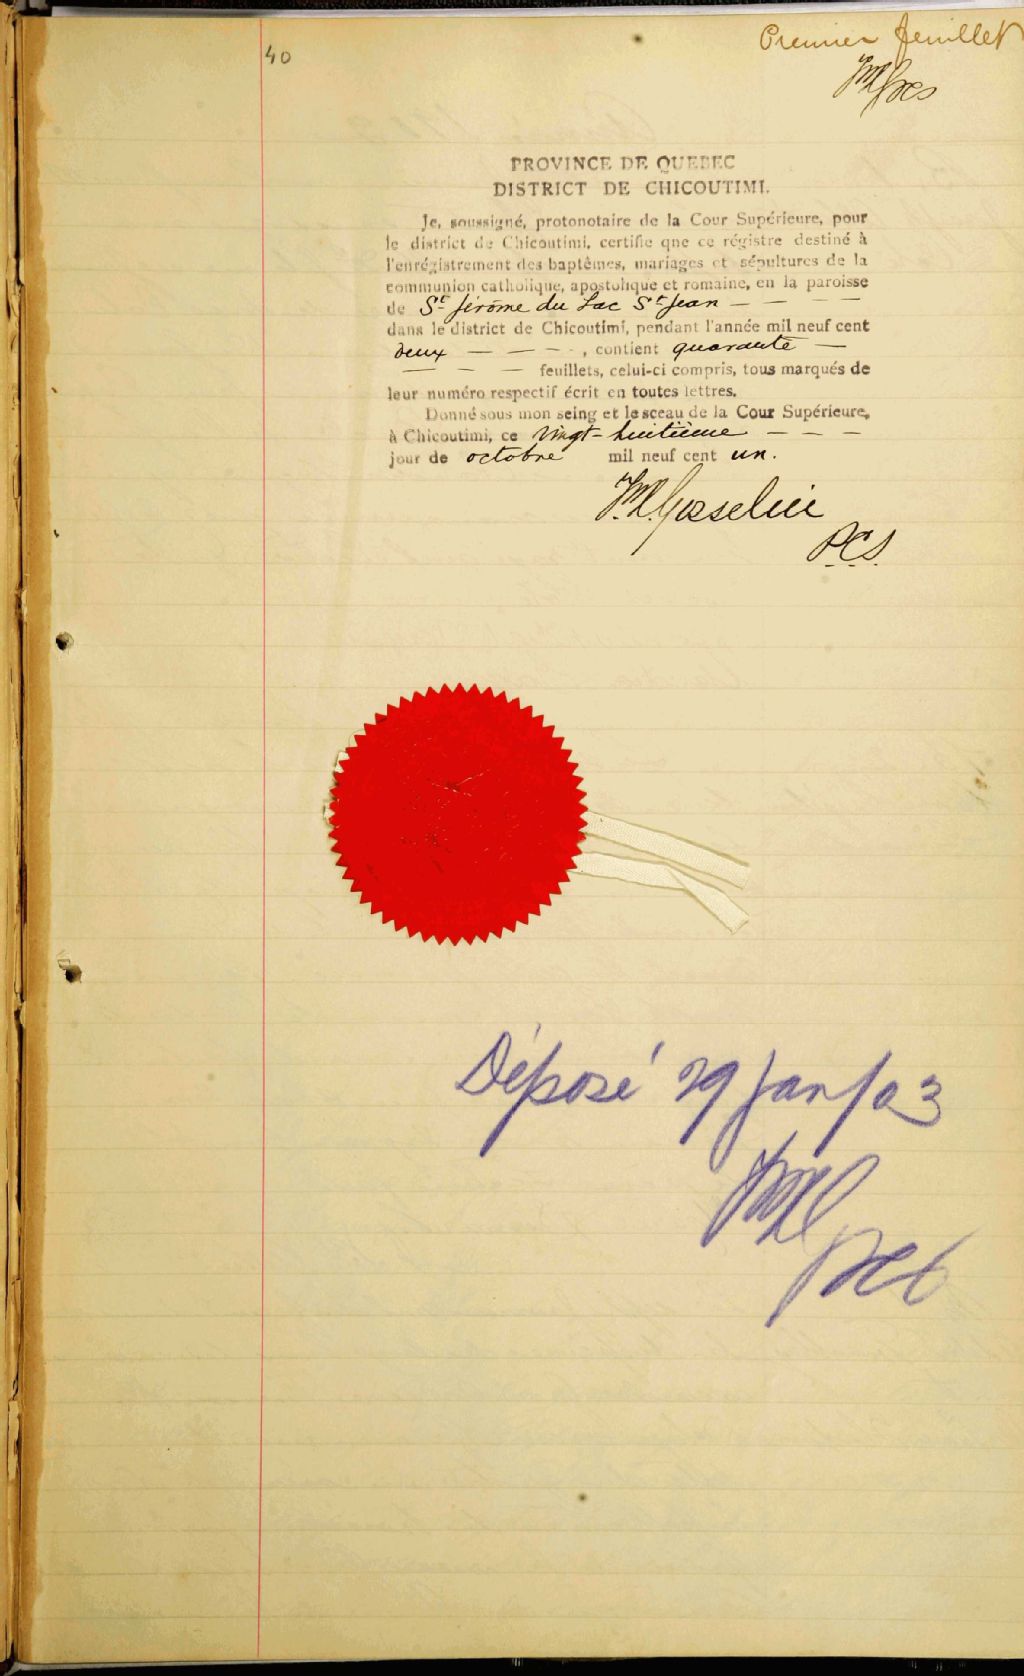 40
Premier feuillet
PROVINCE DE QUEBEC
DISTRICT DE CHICOUTIMI.
Je, soussigné, protonotaire de la Cour Supérieure, pour
le district de Chicoutimi, certifie que ce régistre destiné à
l'enrégistrement des baptêmes, mariages et sépultures de la
communion catholique, apostolique et romaine, en la paroisse
de St Jérôme du Lac St Jean — — — —
dans le district de Chicoutimi, pendant l'année mil neuf cent
deux — — — - , contient quarante —
— — — feuillets, celui-ci compris, tous marqués de
leur numéro respectif écrit en toutes lettres.
Donné sous mon seing et le sceau de la Cour Supérieure,
à Chicoutimi, ce vingt-huitième — — —
jour de octobre mil neuf cent un.
Gosselin
P.C.S.
Déposé 29 Jan/03